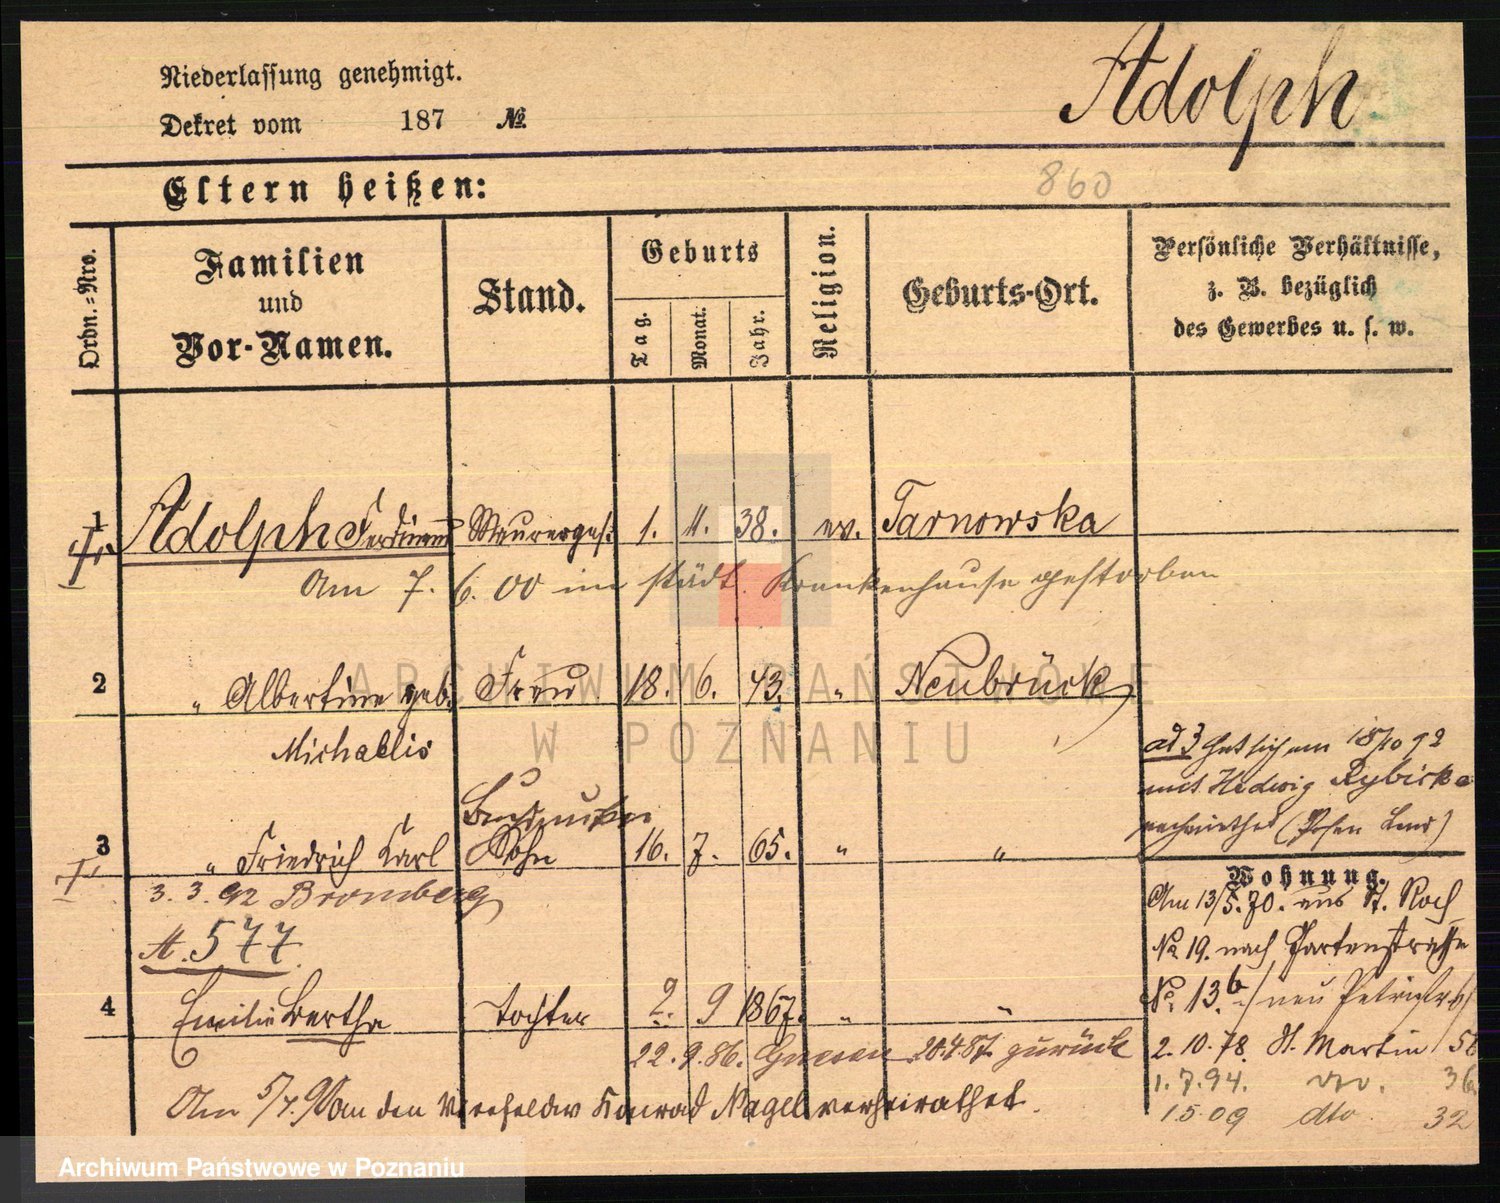 Niederlassung genehmigt.
Dekret vom 187 №
Adolph
860
Eltern heißen:
Ordn.=Nro.
Familien und Vor-Namen.
Stand.
Geburts
Tag.
Monat.
Jahr.
Religion.
Geburts-Ort.
Persönliche Verhältnisse,
z. B. bezüglich
des Gewerbes u. s. w.
1 Adolph Ferdinand Maurerges. 1. 11. 38. ev. Tarnowska
Am 7. 6. 00 im städt. Krankenhause gestorben
2 " Albertine geb. Frau 18. 6. 43. " Neubrück
Michaelis
ad 3 hat sich am 18/10 92
mit Hedwig Rybicka
(Posen
3 " Friedrich Carl Sohn 16. 7. 65. " "
3. 3. 92 Bromberg
A. 577
Wohnung.
Am 13/5. 70. aus St. Roch
No 19. nach Gartenstraße
No. 13b
4 Emilie Bertha Tochter 2. 9 1867. " "
22. 9. 86. Gnesen 20.4.87. zurück
2. 10. 78. St. Martin 56
1. 7. 94. 36
Am 5/7. 90 an den Konrad Nagel verheirathet.
1 5 09 dto 32
ARCHIWUM PAŃSTWOWE
W POZNANIU
Archiwum Państwowe w Poznaniu